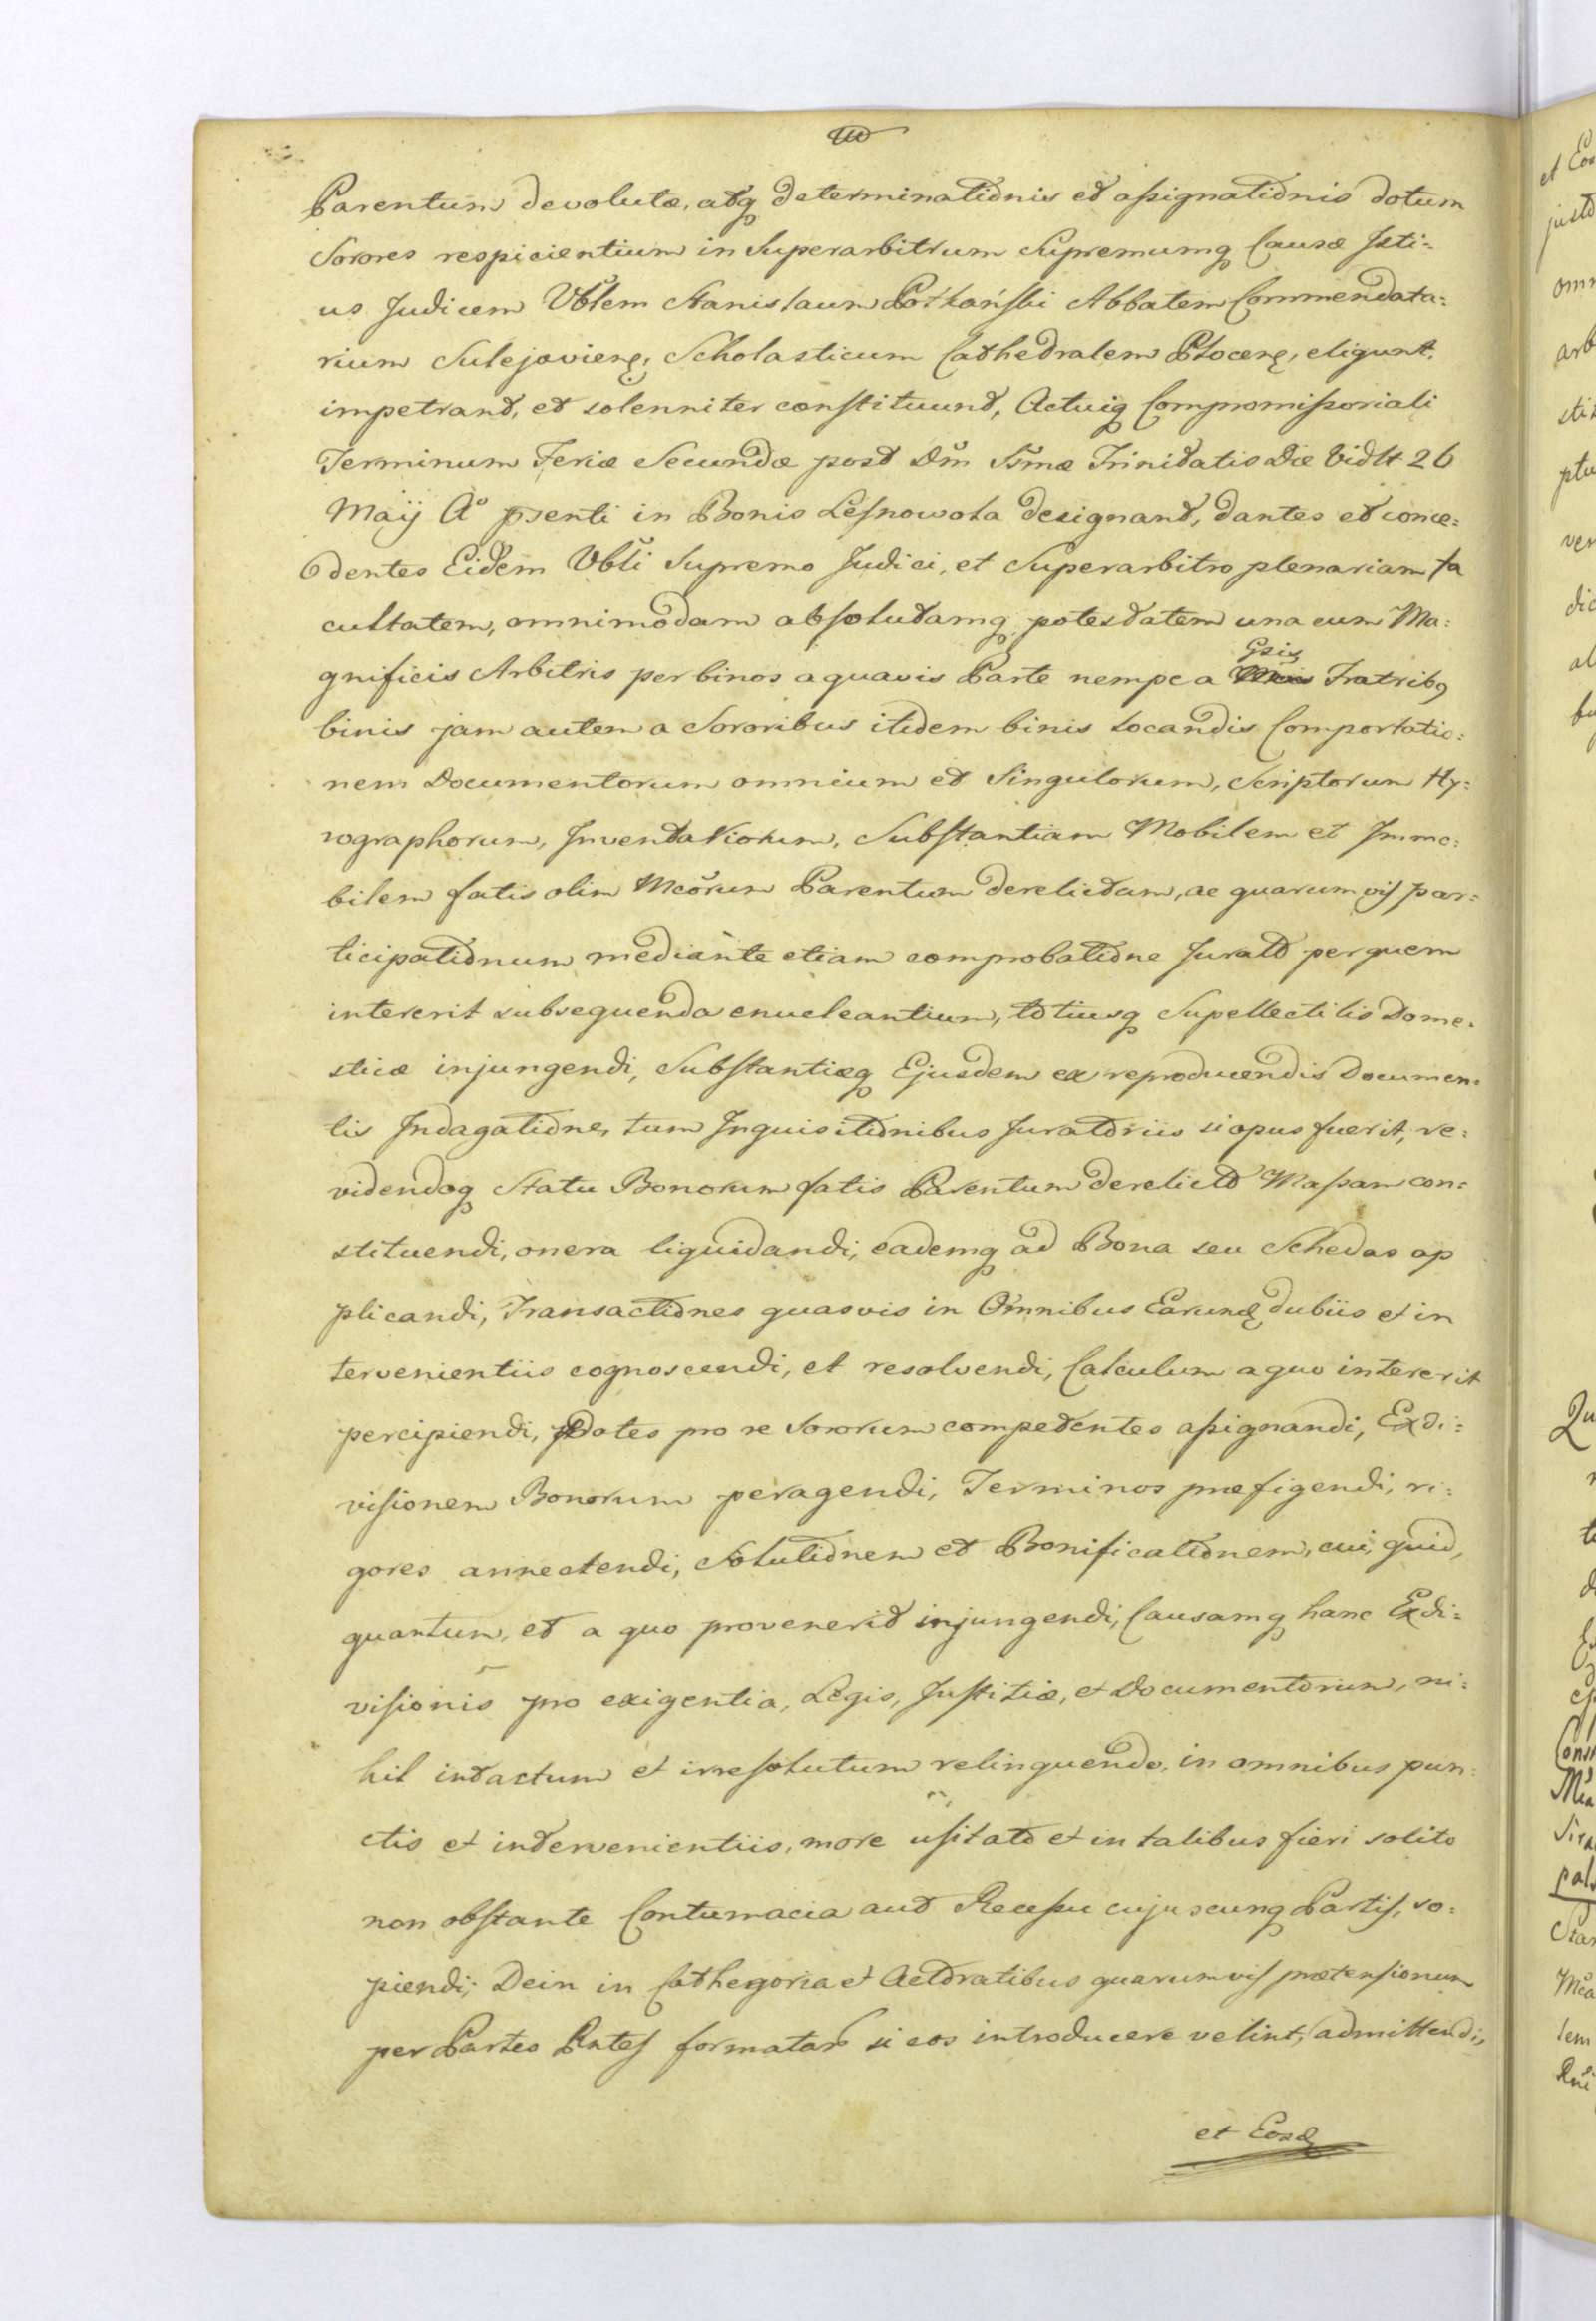 Parentum devolutæ, atq determinationis et assignationis dotum
Sorores respicientium in Superarbitrum Supremumq Causæ Isti=
us Judicem Vblem Stanislaum Pothański Abbatem Commendata=
rium Sulejoviens, Scholasticum Cathedralem Plocens, eligunt,
impetrant, et solenniter constituunt, Actuiq Compromissoriali
Terminum Feriæ Secundæ post Dm Ssmæ Trinitatis Die vidlt 26
Maij Ao psenti in Bonis Lesnowola designant, dantes et conce=
dentes Eidem Vbli Supremo Judici, et Superarbitro plenariam fa
cultatem, omnimodam absolutamq potestatem una cum Ma=
gnificis Arbitris per binos a quavis Parte nempe a Gsis Fratribq
binis jam autem a Sororibus itidem binis locandis Comportatio=
nem Documentorum omnium et Singulorum, Scriptorum Hy=
rographorum, Inventariorum, Substantiam Mobilem et Immo=
bilem fatis olim Mcorum Parentum derelictam, ac quarumvis par=
ticipationum mediante etiam comprobatione Jurato per quem
intererit subsequenda enucleantium, totiusq Supellectilis Dome=
sticæ injungendi, Substantiæq Ejusdem ex reproducendis Documen=
tis Indagatione, tum Inquisitionibus Juratoriis si opus fuerit, re=
videndoq Statu Bonorum fatis Parentum derelicto Massam con=
stituendi, onera liquidandi, eademq ad Bona seu Schedas ap
plicandi, Transactiones quasvis in Omnibus Earund dubiis et in
tervenientiis cognoscendi, et resolvendi, Calculum a quo intererit
percipiendi, Dotes pro re Sororum competentes assignandi, Exdi=
visionem Bonorum peragendi, Terminos præfigendi, ri=
gores annectendi, Solutionem et Bonificationem, cui, quid,
quantum, et a quo provenerit injungendi, Causamq hanc Exdi=
visionis pro exigentia, Legis, Justitiæ, et Documentorum, ni=
hil intactum et irresolutum relinquendo, in omnibus pun=
ctis et intervenientiis, more usitato et in talibus fieri solito
non obstante Contumacia aut Recessu cujuscunq Partis, so=
piendi; Dein in Cathegoria et Actoratibus quarumvis prætensionum
per Partes Pntes formatas si eos introducere velint, admittendi,
et Eosd